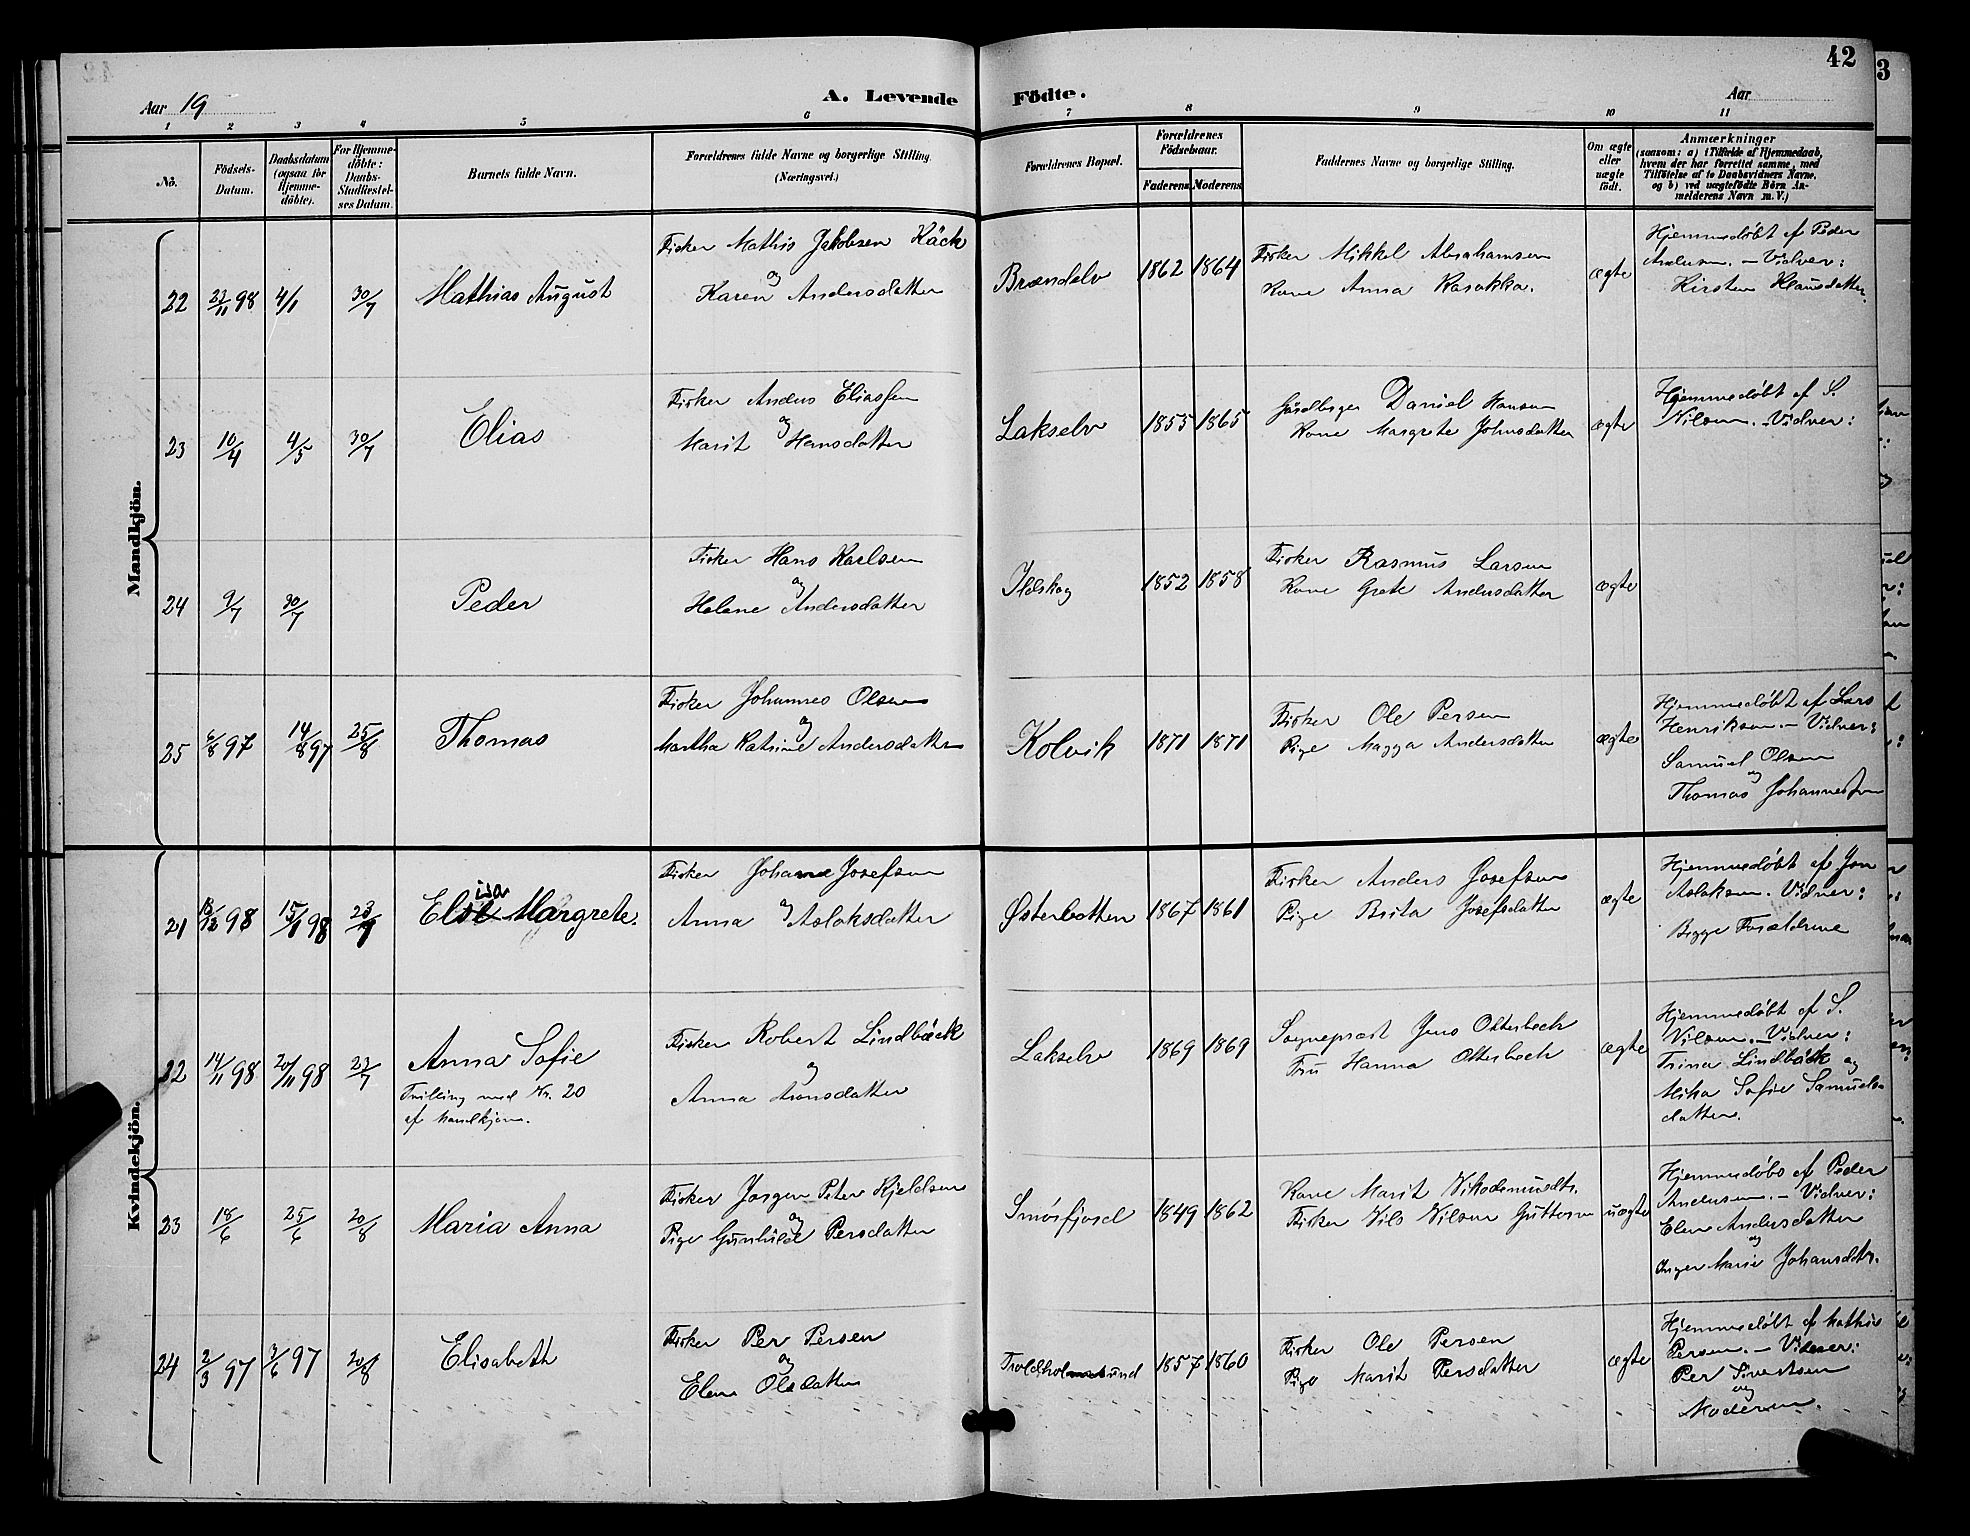 42
3
Aar 19
A. Levende
Födte.
Aar
1 2 3 4 5 6 7 8 9 10 11
No.
Födsels-
Datum.
Daabsdatum
(ogsaa for
Hjemme-
döbte).
For Hjemme-
döbte:
Daabs-
Stadfæstel-
ses Datum.
Barnets fulde Navn.
Forældrenes fulde Navne og borgerlige Stilling.
(Næringsvei.)
Forældrenes Bopæl.
Forældrenes
Födselsaar.
Faderens Moderens
Faddernes Navne og borgerlige Stilling.
Om ægte
eller
uægte
födt.
Anmærkninger
(saasom: a) i Tilfælde af Hjemmedaab,
hvem der har forrettet samme, med
Tilföielse af to Daabsvidners Navne,
og b) ved uægtefödte Börn An-
melderens Navn m. V.)
Mandkjön.
22 98 4/1 30/7
Mathias August
Fisker Mathis Jakobsen Käck
og
Karen Andersdatter
Brændelv
1862 1864
Fisker Mikkel Abrahamsen
Kone Anna Kasakka.
ægte
Hjemmedøbt af Peder
Andersen. – Vidner:
Kirsten Klausdatter.
23 10/4 4/5 30/7
Elias
Fisker Anders Eliassen
og
Marit Hansdatter
Lakselv
1855 1865
Daniel Hansen
Kone Margrete Johnsdatter
ægte
Hjemmedøbt af S.
Nilsen. – Vidner:
24 9/7 30/7
Peder
Fisker Hans Karlsen
og
Helene Andersdatter
Ildskog
1852 1858
Fisker Rasmus Larsen
Kone Grete Andersdatter
ægte
25 6/8 97 14/8 97 25/8
Thomas
Fisker Johannes Olsen
og
Martha Katrine Andersdatter
Kolvik
1871 1871
Fisker Ole Persen
Pige Magga Andersdatter
ægte
Hjemmedøbt af Lars
Henriksen. – Vidner:
Samuel Olsen
og
Thomas Johannessen
Kvindekjön.
21 98 15/1 98 23/7
isa
Else Margrete.
Fisker Johan Josefsen
og
Anna Aslaksdatter
Østerbotten
1867 1861
Fisker Anders Josefsen
Pige Brita Josefsdatter
ægte
Hjemmedøbt af Jon
Aslaksen. Vidner:
Begge Forældrene
22 14/11 98 20/11 98 23/7
Anna Sofie
Tvilling med Nr. 20
af Mandkjøn.
Fisker Robert Lindbäck
og
Anna Aronsdatter
Lakselv
1869 1869
Sogneprest Jens Otterbech
Fru Hanna Otterbech
ægte
Hjemmedøbt af S.
Nilsen. – Vidner:
Trina Lindbäck og
Mika Sofie Samuels-
datter.
23 18/6 25/6 20/8
Maria Anna
Fisker Jørgen Peter Kjeldsen
og
Pige Gunhild Persdatter
Smørfjord
1849 1862
Kone Marit Nikodemusdtr.
Fisker Nils Nilsen Guttorm
uægte
Hjemmedøbt af Peder
Andersen. – Vidner:
Elen Andersdatter
og
Inger Marie Johansdtr.
24 2/3 97 3/6 97 20/8
Elisabeth
Fisker Per Persen
og
Elen Olsdatter
Troldholmsund
1857 1860
Fisker Ole Persen
Pige Marit Persdatter
ægte
Hjemmedøbt af Mathis
Persen. – Vidner:
Per Sivertsen
og
Moderen.